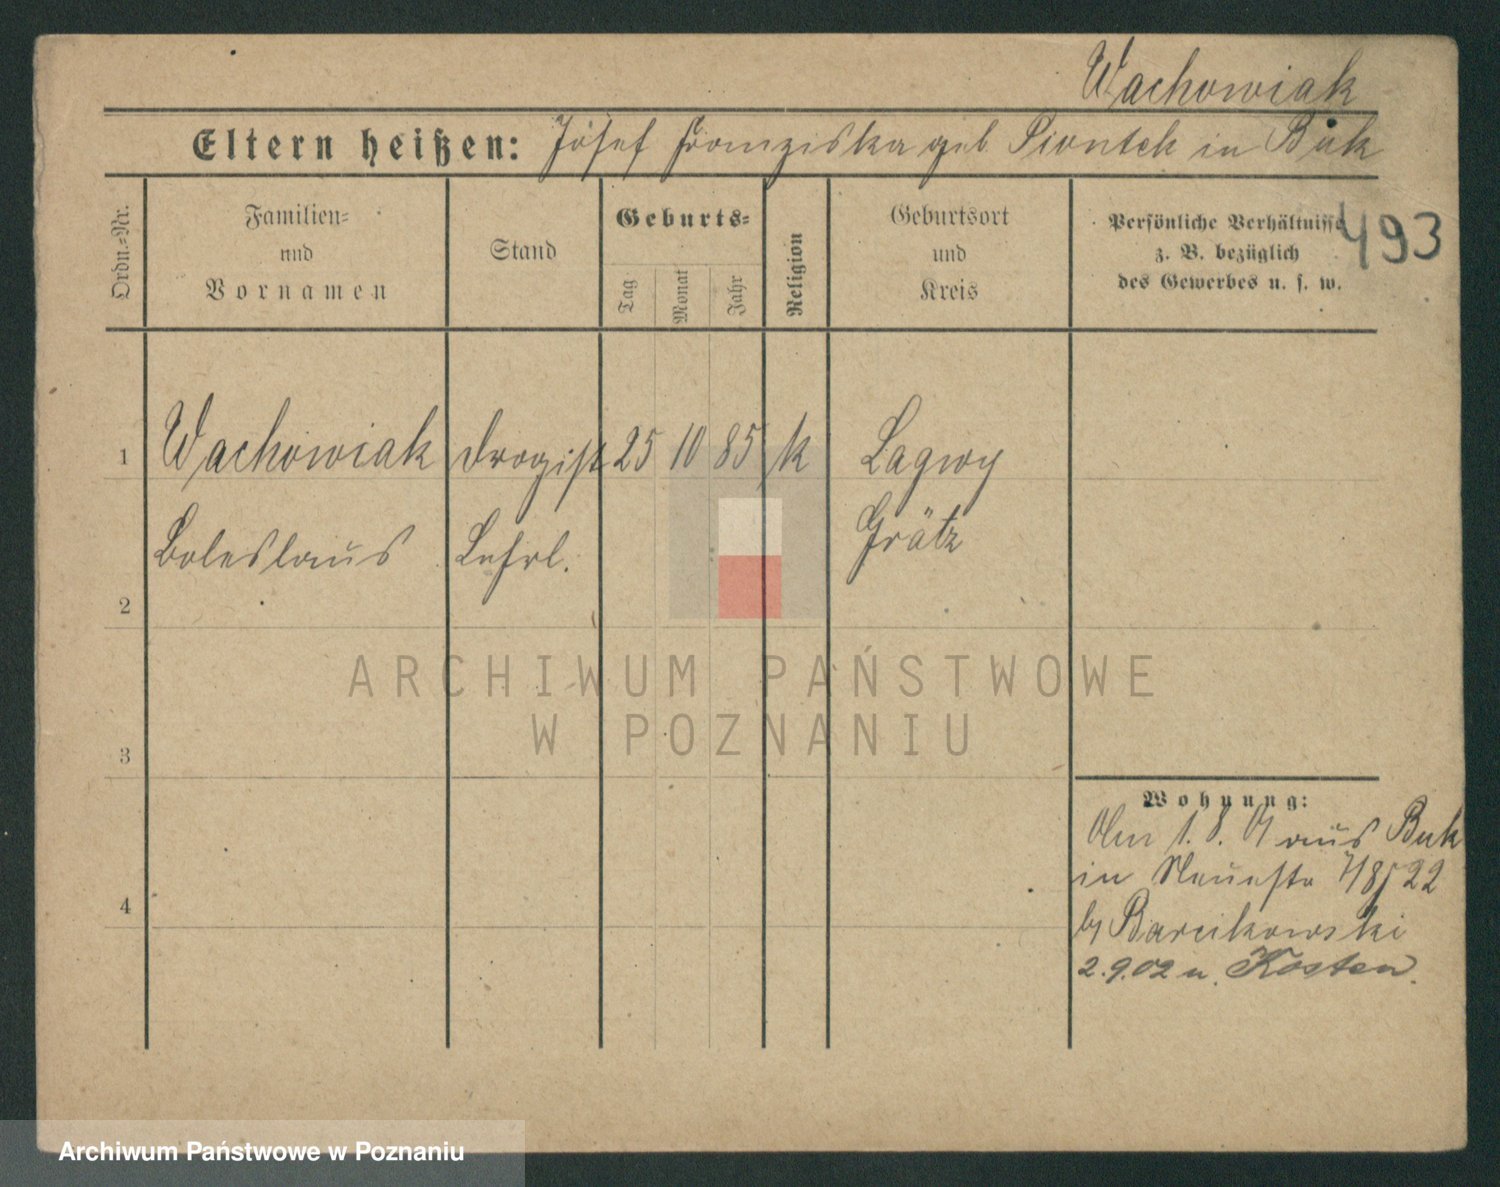 Wachowiak
Eltern heißen: Josef Franziska geb Piontek in Buk
493
Ordn.-Nr.
Familien-
und
Vornamen
Stand
Geburts-
Tag
Monat
Jahr
Religion
Geburtsort
und
Kreis
Persönliche Verhältnisse
z. B. bezüglich
des Gewerbes u. s. w.
1 Wachowiak Drogist 25 10 85 k Lagwy
Boleslaus Lehrl. Grätz
2
3
4
ARCHIWUM PAŃSTWOWE
W POZNANIU
Wohnung:
Am 1. 8. 01 aus Buk
in Neuestr 7/8 22
b/ Barcikowski
2.9.02 n. Kosten.
Archiwum Państwowe w Poznaniu